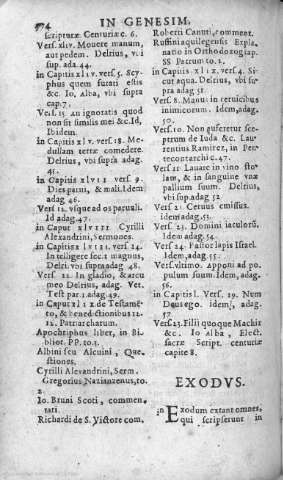 474 IN GENESIM,
scripturæ Centuriæ c. 6.
Vers. xliv. Movere manum,
aut pedem. Delrius, v. i
sup. ada. 44.
in Capitis xliv. vers. 5. Scy-
phus quem furati estis
&c. Io, Alba, vbi supra
cap. 7.
Vers. 15. an ignoratis quod
non sit similis mei &c. Id,
Ibidem.
in Capitis xlv. vers. 18. Me-
dullam terræ comedere.
Delrius, vbi supra adag.
45.
in Capitis xlvii vers. 9.
Dies parui, & mali. Idem
adag 46.
Vers 12. vsque ad os paruuli.
Id adag. 47.
in Caput xlviii Cyrilli
Alexandrini, Sermones.
in Capitis xlviii. vers. 24.
In telligere sec. 1 magnus,
Delri. vbi supra adag 48.
Vers. 22. In gladio, & arcu
meo Delrius, adag. Vet.
Test par. 1. adag. 49.
in Caput xlix de Testamē-
to, & benedictionibus 12.
12. Patriarcharum.
Apochriphus liber, in Bi-
bliot. PP. to. 1.
Albini seu Alcuini, Quę-
stiones.
Cyrilli Alexandrini, Serm.
Gregorius Nazianzenus, to.
2.
Io. Bruni Scoti, commen-
tati.
Richardi de S. Victore com,
Roberti Canuti, comment.
Ruffini aquilegensis Expla-
natio in Orthodoxog ap.
SS Patrum to. 2.
in Capitis xlix. vers 4. Si
cut aqua. Delrius, vbi su
pra adag 51
Vers 8. Manu in ceruicibus
inimicorum. Idem, adag.
50.
Vers. 10. Non auferetur sce-
ptrum de Iuda &c. Lau-
rentius Ramirez, in Pen-
tecontarchi c. 47.
Vers 11. Lauare in vino sto
lam, & in sanguine vuæ
pallium suum. Delrius,
vbi sup. adag 52
Vers 21. Ceruus emissus.
idem adag. 53.
Vers 23. Domini iaculorū.
Idem adag. 54.
Vers 24. Pastor lapis Israel.
Idem adag. 55.
Vers. vltimo. apponi ad po
pulum suum. Idem, adag.
56.
in Capitis l. Vers. 19. Num
Deus ego. Idem, adag.
57
Vers 23. Filij quoque Machir
&c. Io Alba, Elect.
sacræ Script. centuriæ
capite 8.
EXODVS.
in Exodum extant omnes,
qui scripserunt in